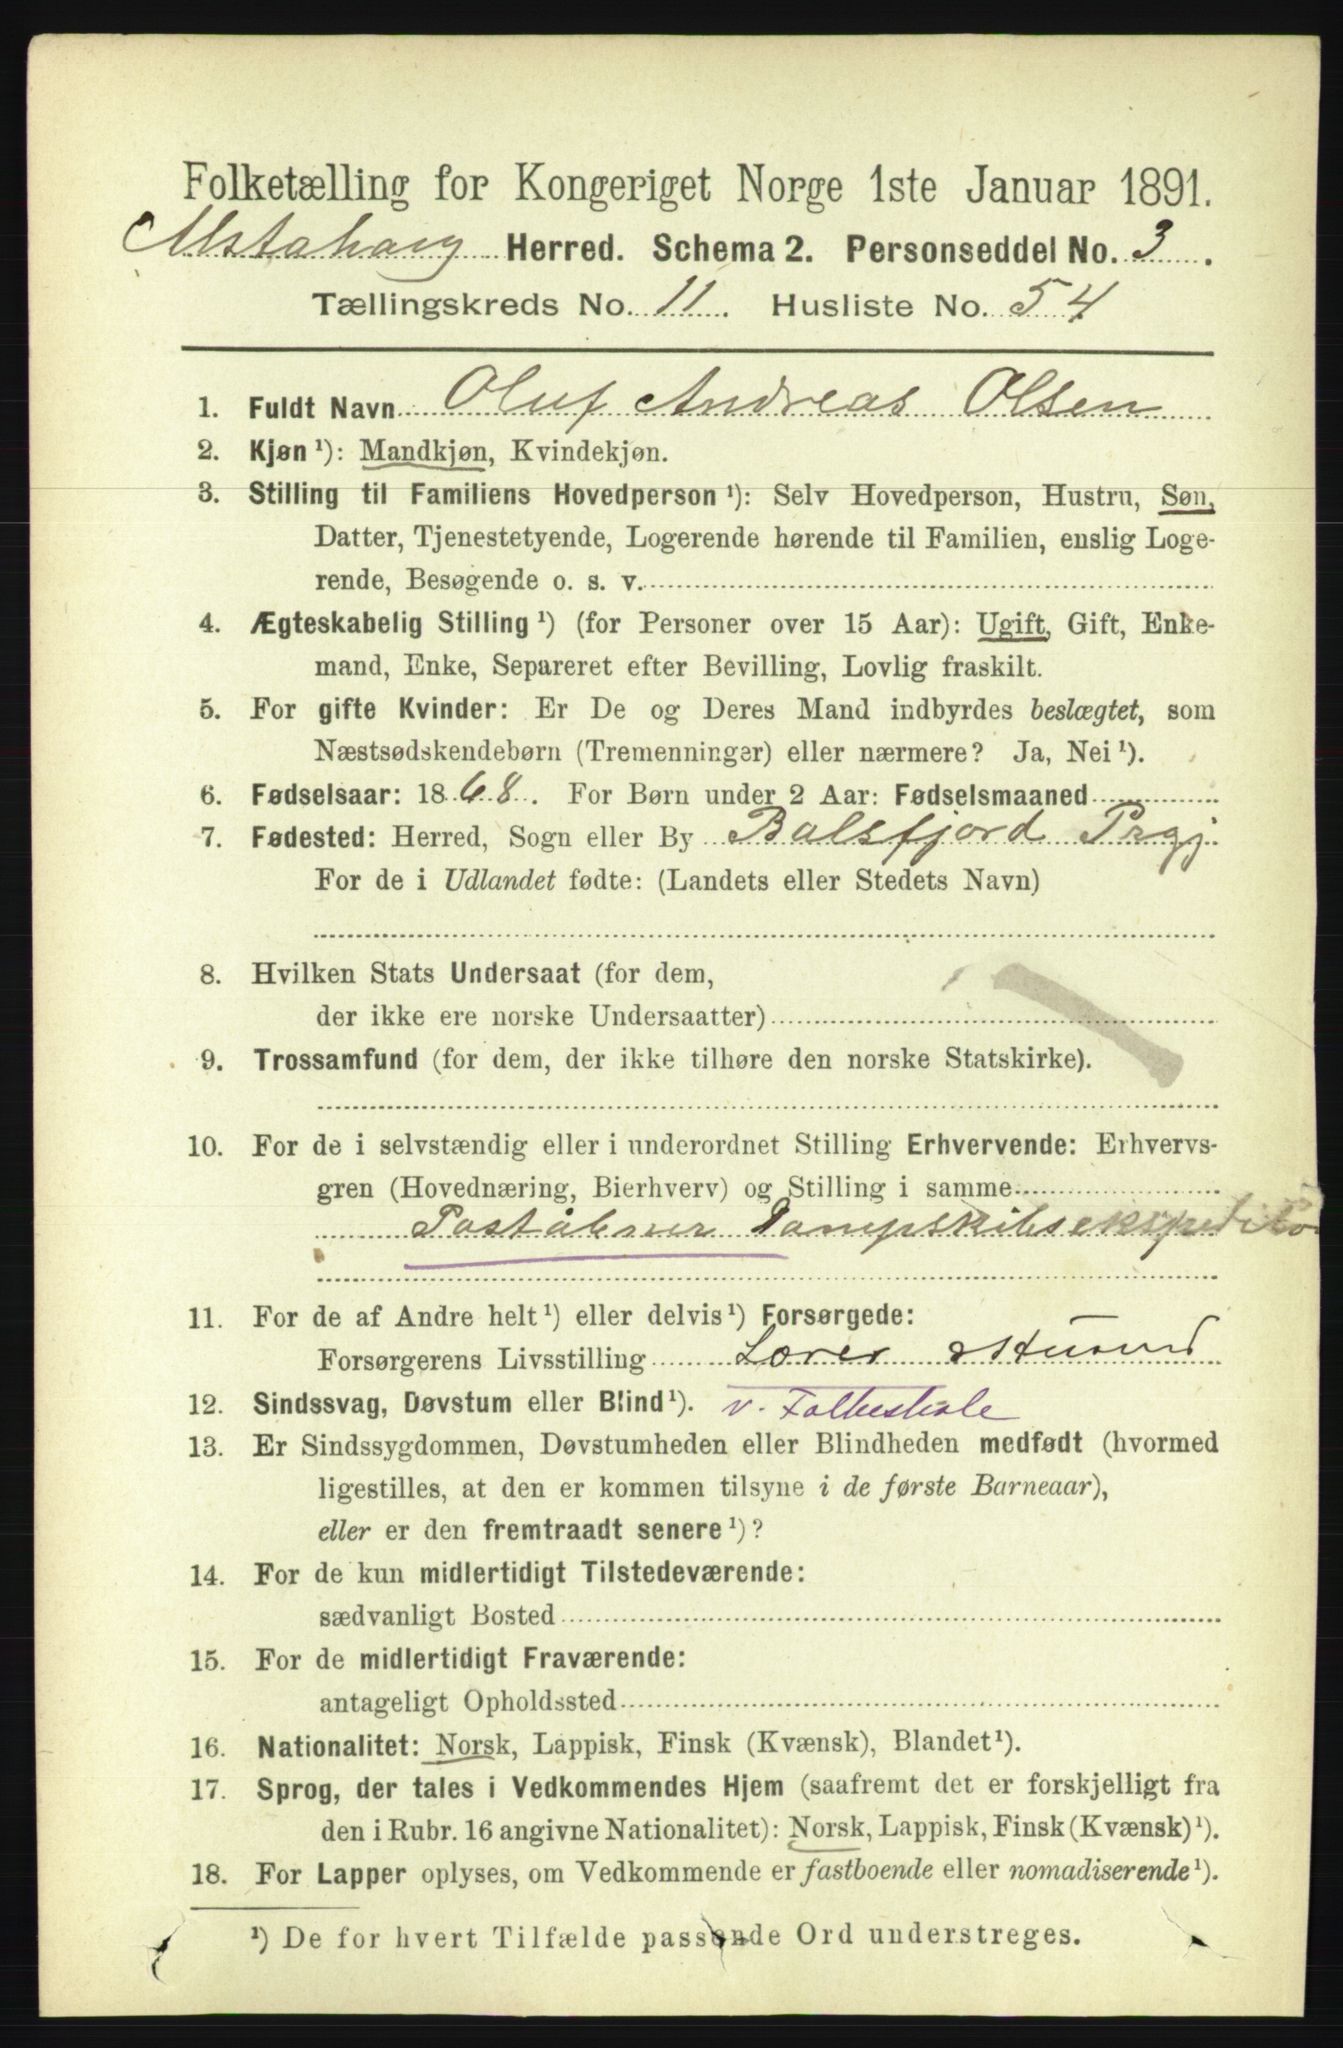 Folketælling for Kongeriget Norge 1ste Januar 1891.
Alstahaug Herred. Schema 2. Personseddel No. 3.
Tællingskreds No. 11. Husliste No. 54
1. Fuldt Navn Oluf Andreas Olsen
2. Kjøn ¹): Mandkjøn, Kvindekjøn.
3. Stilling til Familiens Hovedperson ¹): Selv Hovedperson, Hustru, Søn,
Datter, Tjenestetyende, Logerende hørende til Familien, enslig Loge-
rende, Besøgende o. s. v.
4. Ægteskabelig Stilling ¹) (for Personer over 15 Aar): Ugift, Gift, Enke-
mand, Enke, Separeret efter Bevilling, Lovlig fraskilt.
5. For gifte Kvinder: Er De og Deres Mand indbyrdes beslægtet, som
Næstsødskendebørn (Tremenninger) eller nærmere? Ja, Nei ¹).
6. Fødselsaar: 1868. For Børn under 2 Aar: Fødselsmaaned
7. Fødested: Herred, Sogn eller By Balsfjord Prgj.
For de i Udlandet fødte: (Landets eller Stedets Navn)
8. Hvilken Stats Undersaat (for dem,
der ikke ere norske Undersaatter)
9. Trossamfund (for dem, der ikke tilhøre den norske Statskirke).
10. For de i selvstændig eller i underordnet Stilling Erhvervende: Erhvervs-
gren (Hovednæring, Bierhverv) og Stilling i samme
Poståbner Dampskibsekspeditør
11. For de af Andre helt ¹) eller delvis ¹) Forsørgede:
Forsørgerens Livsstilling Lærer
12. Sindssvag, Døvstum eller Blind ¹). v. Folkeskole
13. Er Sindssygdommen, Døvstumheden eller Blindheden medfødt (hvormed
ligestilles, at den er kommen tilsyne i de første Barneaar),
eller er den fremtraadt senere ¹)?
14. For de kun midlertidigt Tilstedeværende:
sædvanligt Bosted
15. For de midlertidigt Fraværende:
antageligt Opholdssted
16. Nationalitet: Norsk, Lappisk, Finsk (Kvænsk), Blandet ¹).
17. Sprog, der tales i Vedkommendes Hjem (saafremt det er forskjelligt fra
den i Rubr. 16 angivne Nationalitet): Norsk, Lappisk, Finsk (Kvænsk) ¹).
18. For Lapper oplyses, om Vedkommende er fastboende eller nomadiserende ¹).
¹) De for hvert Tilfælde passende Ord understreges.